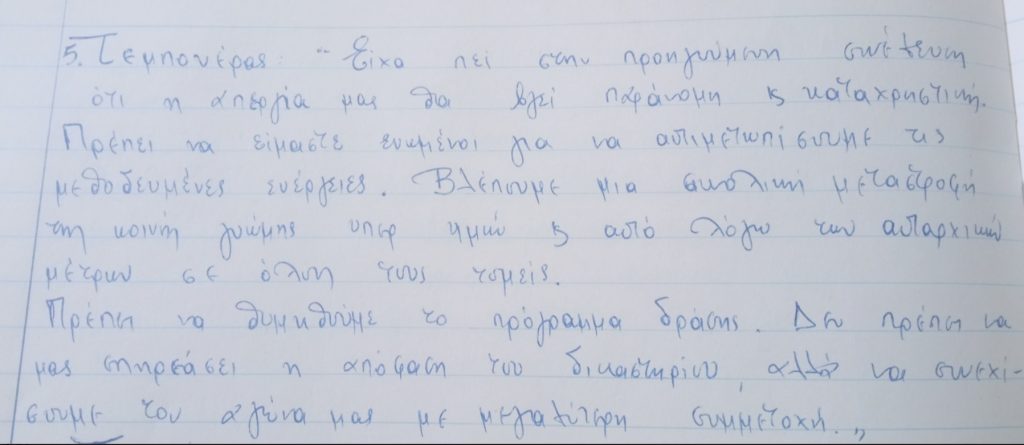 5. Τεμπονέρας: "Είχα πει στην προηγούμενη συνέλευση
ότι η απεργία μας θα βγεί παράνομη ϗ καταχρηστική.
Πρέπει να είμαστε ενωμένοι για να αντιμετωπίσουμε τις
μεθοδευμένες ενέργειες. Βλέπουμε μια συνολική μεταστροφή
της κοινής γνώμης υπερ ημών ϗ αυτό λόγω των αυταρχικών
μέτρων σε όλους τους τομείς.
Πρέπει να θυμηθούμε το πρόγραμμα δράσης. Δεν πρέπει να
μας επηρεάσει η απόφαση του δικαστηρίου, αλλά να συνεχί-
σουμε τον αγώνα μας με μεγαλύτερη συμμετοχή. „